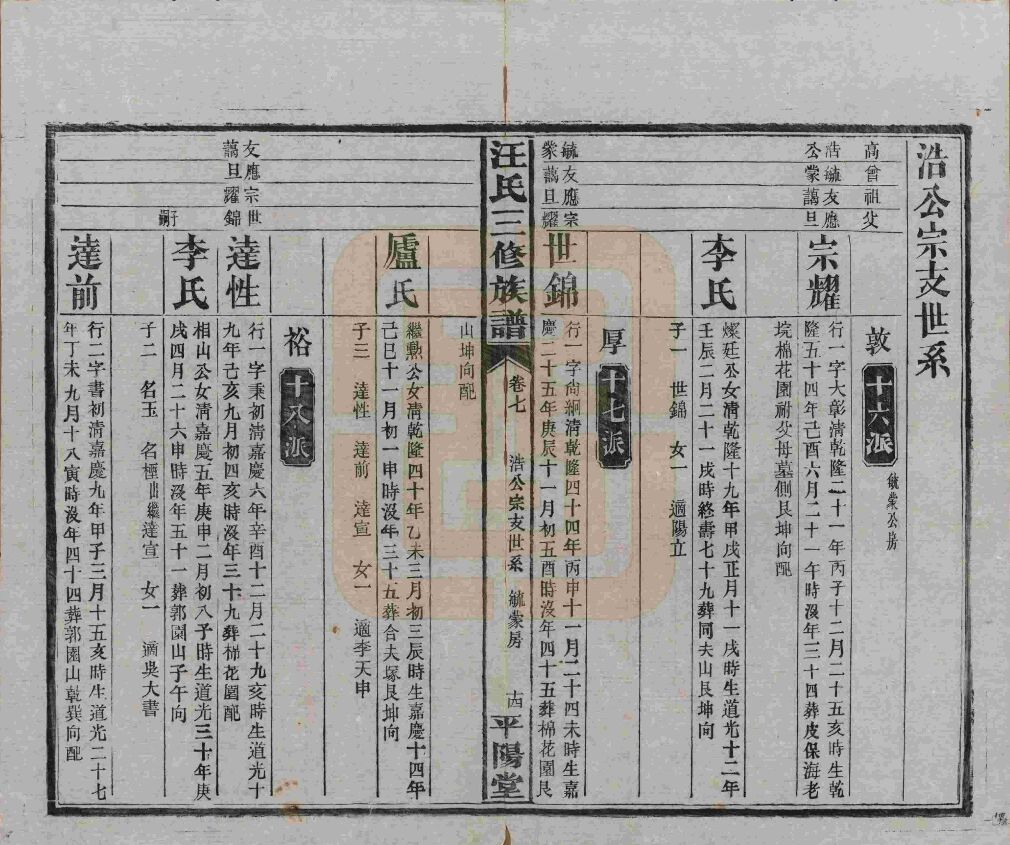 浩公宗支世系
高曾祖父
敦 十六派 毓蒙公房
浩毓友應
公蒙藹旦
宗耀
行一字大彰清乾隆二十一年丙子十二月二十五亥時生乾
隆五十四年己酉六月二十一午時沒年三十四葬皮保海老
垸棉花園祔父母墓側艮坤向配
李氏
燦廷公女清乾隆十九年甲戌正月十一戌時生道光十二年
壬辰二月二十一戌時終壽七十九葬同夫山艮坤向
子一 世錦 女一 適陽立
厚 十七派
毓友應宗
蒙藹旦耀
世錦
行一字尚絅清乾隆四十四年丙申十一月二十四未時生嘉
慶二十五年庚辰十一月初五酉時沒年四十五葬棉花園艮
汪氏三修族譜 卷七 浩公宗支世系 毓蒙房 十四 平陽堂
山坤向配
廬氏
繼勲公女清乾隆四十年乙未三月初三辰時生嘉慶十四年
己巳十一月初一申時沒年三十五葬合夫塚艮坤向
子三 達性 達前 達宣 女一 適李天申
裕 十八派
友應宗世
藹旦耀錦
達性
行一字秉初清嘉慶六年辛酉十二月二十九亥時生道光十
九年己亥九月初四亥時沒年三十九葬棉花園配
子嗣
李氏
相山公女清嘉慶五年庚申二月初八子時生道光三十年庚
戌四月二十六申時沒年五十一葬郭園山子午向
子二 名玉 名極出繼達宣 女一 適吳大書
達前
行二字書初清嘉慶九年甲子三月十五亥時生道光二十七
年丁未九月十八寅時沒年四十四葬郭園山乾巽向配